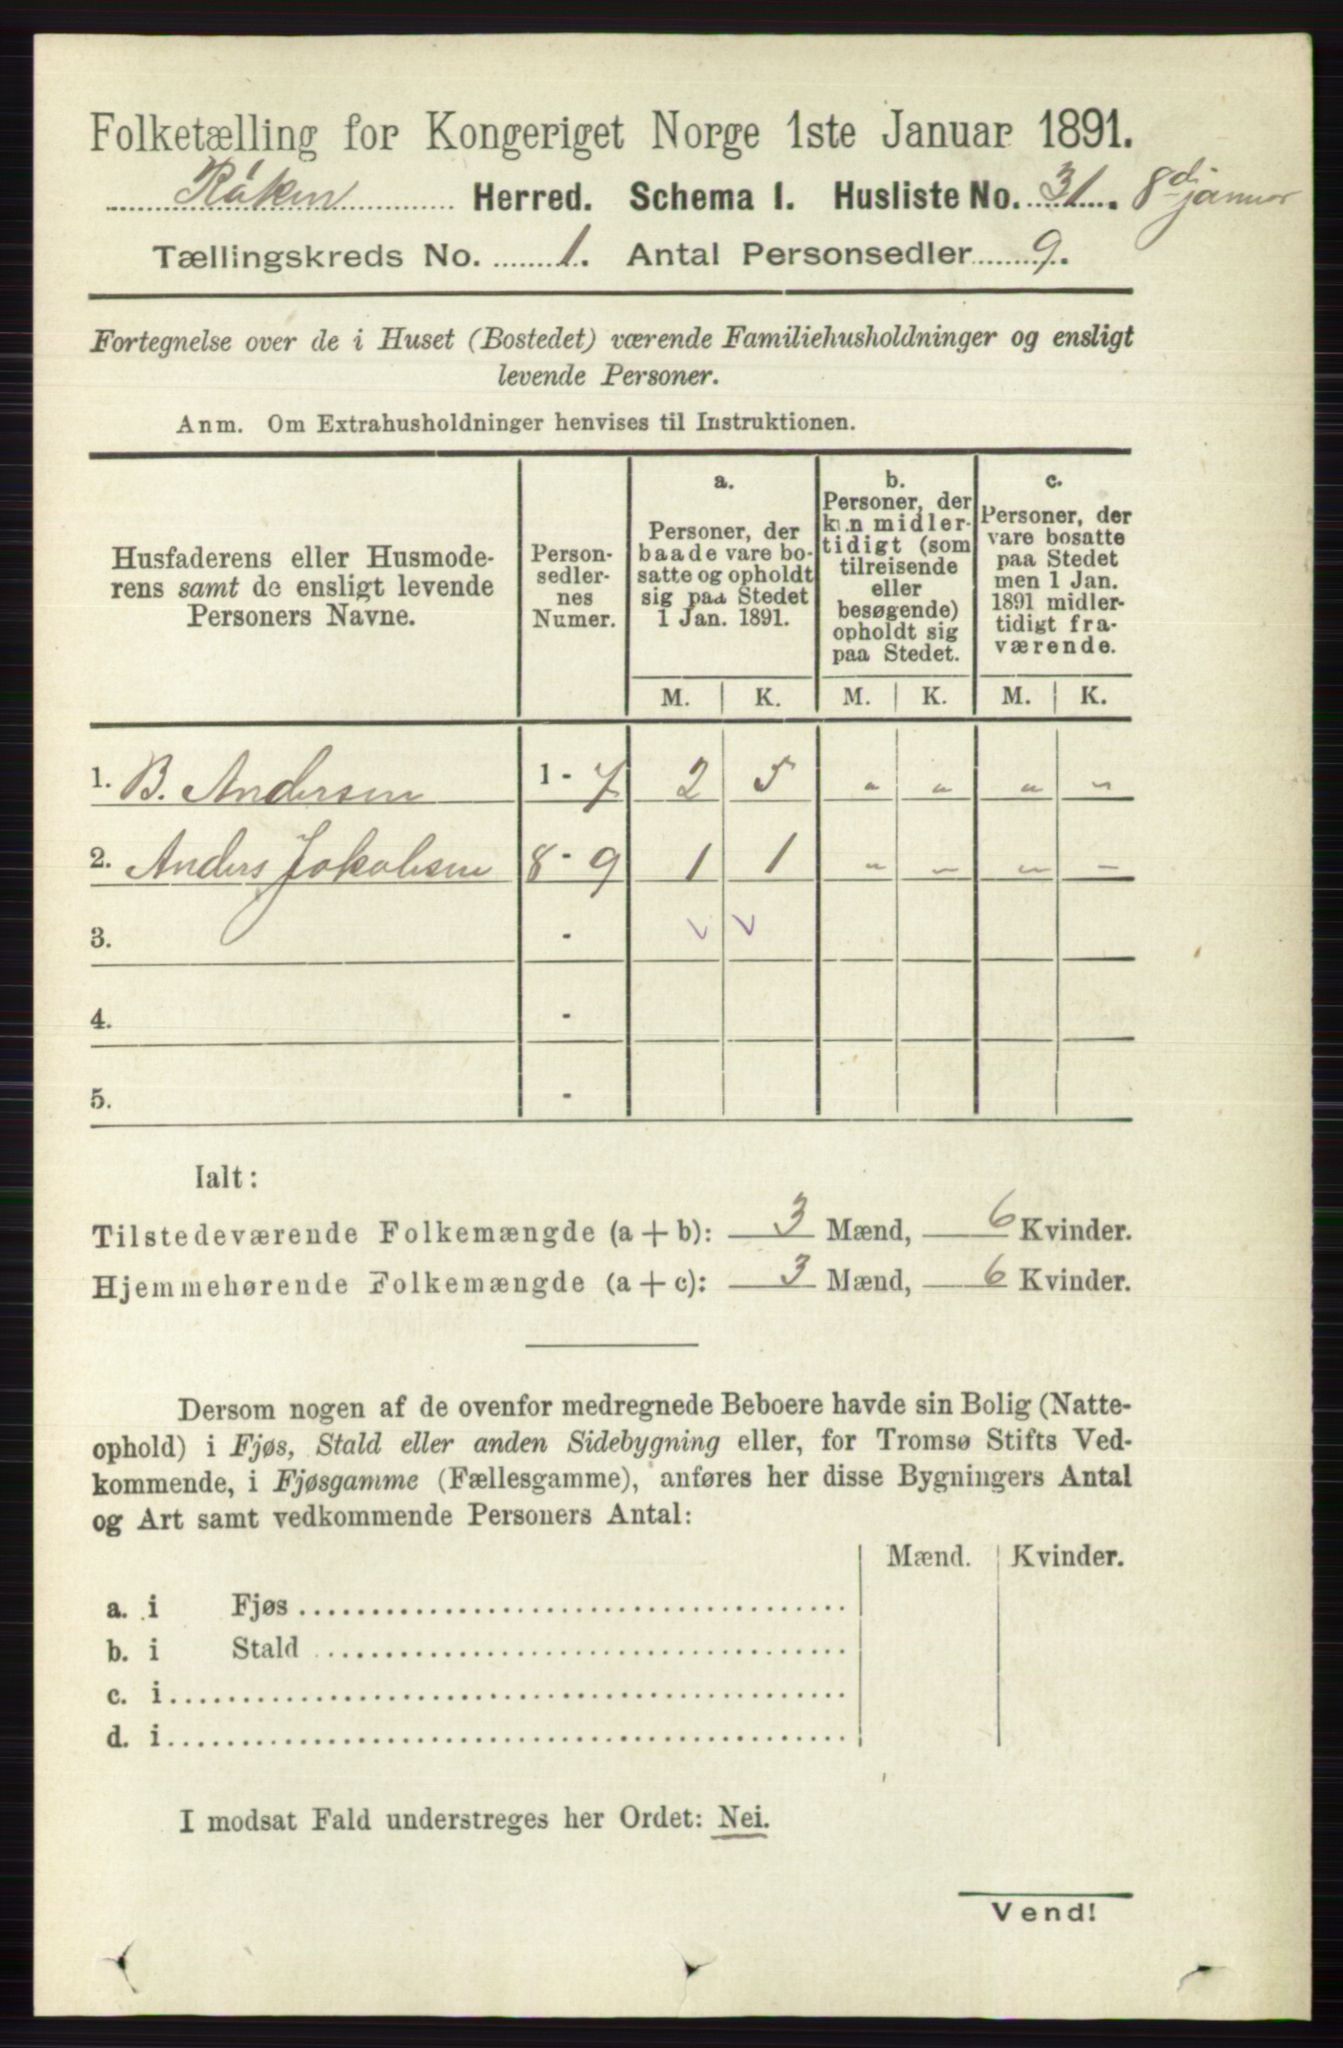 Folketælling for Kongeriget Norge 1ste Januar 1891.
Röken Herred. Schema I. Husliste No. 31. 8d januar
Tællingskreds No. 1. Antal Personsedler 9.
Fortegnelse over de i Huset (Bostedet) værende Familiehusholdninger og ensligt
levende Personer.
Anm. Om Extrahusholdninger henvises til Instruktionen.
Husfaderens eller Husmode-
rens samt de ensligt levende
Personers Navne.
Person-
sedler-
nes
Numer.
a.
Personer, der
baade vare bo-
satte og opholdt
sig paa Stedet
1 Jan. 1891.
b.
Personer, der
kun midler-
tidigt (som
tilreisende
eller
besøgende)
opholdt sig
paa Stedet.
c.
Personer, der
vare bosatte
paa Stedet
men 1 Jan.
1891 midler-
tidigt fra-
værende.
M. K. M. K. M. K.
1. B. Andersen 1 - 7 2 5 " " " "
2. Anders Jakobsen 8 - 9 1 1 " " " "
3. - v v
4. -
5. -
Ialt:
Tilstedeværende Folkemængde (a + b): 3 Mænd, 6 Kvinder.
Hjemmehørende Folkemængde (a + c): 3 Mænd, 6 Kvinder.
Dersom nogen af de ovenfor medregnede Beboere havde sin Bolig (Natte-
ophold) i Fjøs, Stald eller anden Sidebygning eller, for Tromsø Stifts Ved-
kommende, i Fjøsgamme (Fællesgamme), anføres her disse Bygningers Antal
og Art samt vedkommende Personers Antal:
Mænd. Kvinder.
a. i Fjøs
b. i Stald
c. i
d. i
I modsat Fald understreges her Ordet: Nei.
Vend!